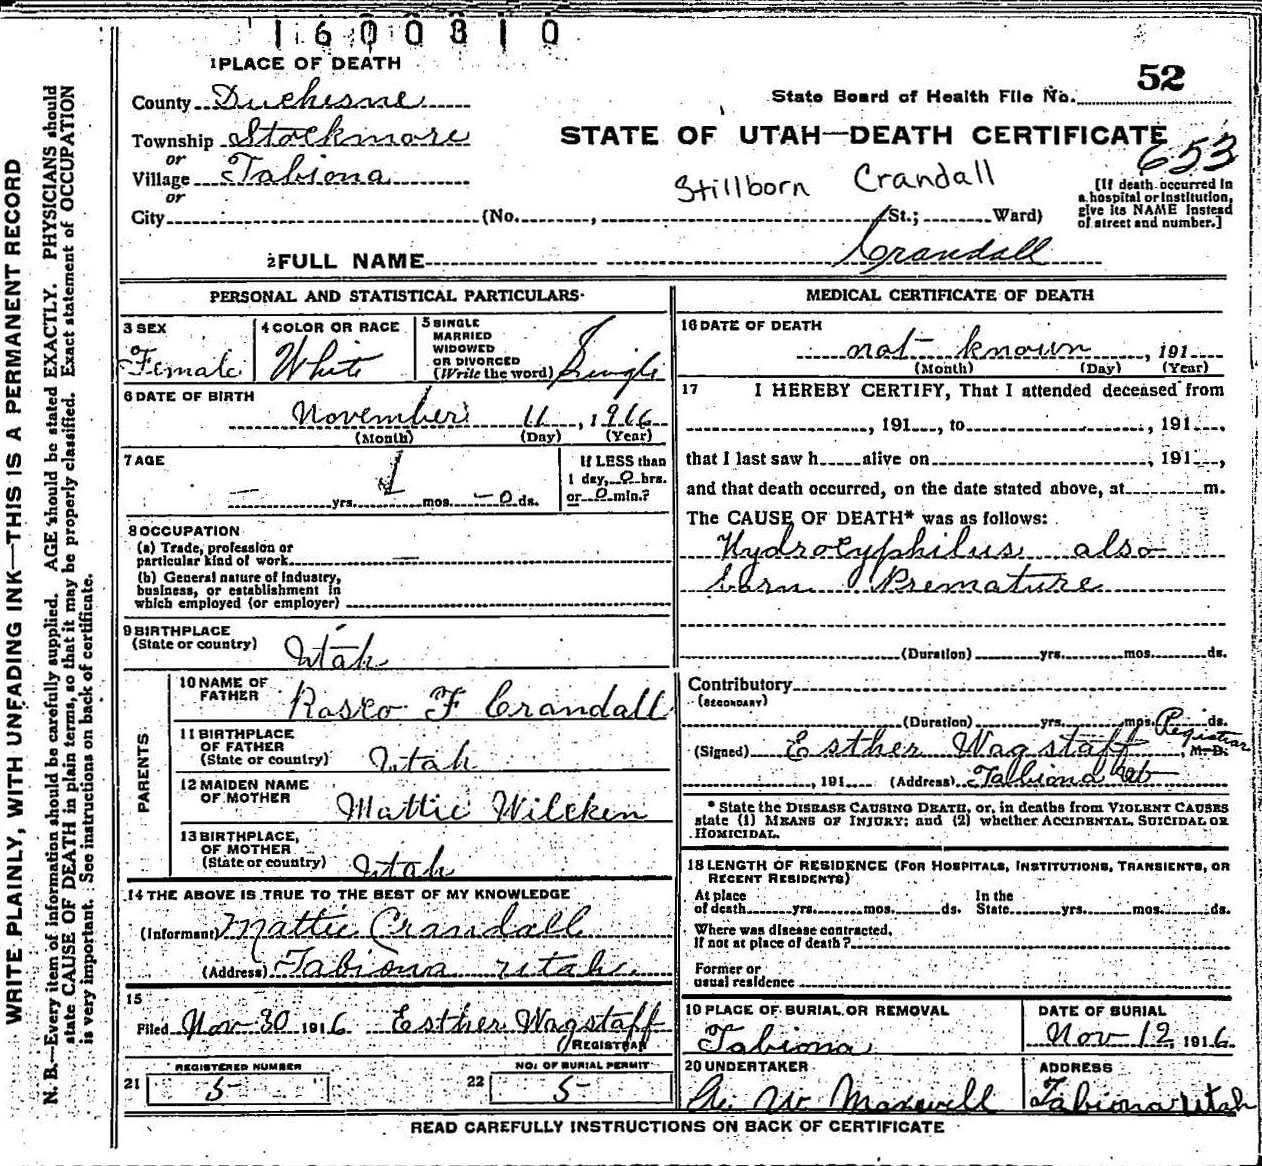 1600310
1 PLACE OF DEATH
52
County Duchesne
State Board of Health File No.
Township Stockmore
STATE OF UTAH—DEATH CERTIFICATE
or
653
Village Tabiona
Stillborn Crandall
[If death occurred in a hospital or institution, give its NAME instead of street and number.]
or
City (No. , St.; Ward)
2 FULL NAME Crandall
PERSONAL AND STATISTICAL PARTICULARS
3 SEX
Female
4 COLOR OR RACE
White
5 SINGLE
MARRIED
WIDOWED
OR DIVORCED
(Write the word) Single
6 DATE OF BIRTH
November 11, 1916
(Month) (Day) (Year)
7 AGE
yrs. mos. 0 ds.
If LESS than
1 day, 0 hrs.
or 0 min.?
8 OCCUPATION
(a) Trade, profession or
particular kind of work
(b) General nature of industry,
business, or establishment in
which employed (or employer)
9 BIRTHPLACE
(State or country) Utah
PARENTS
10 NAME OF
FATHER Rosco F Crandall
11 BIRTHPLACE
OF FATHER
(State or country) Utah
12 MAIDEN NAME
OF MOTHER Mattie Wilcken
13 BIRTHPLACE,
OF MOTHER
(State or country) Utah
14 THE ABOVE IS TRUE TO THE BEST OF MY KNOWLEDGE
(Informant) Mattie Crandall
(Address) Tabiona Utah.
15
Filed Nov 30 1916 Esther Wagstaff
REGISTRAR
REGISTERED NUMBER
21 5
NO. OF BURIAL PERMIT
22 5
MEDICAL CERTIFICATE OF DEATH
16 DATE OF DEATH
not known, 191
(Month) (Day) (Year)
17 I HEREBY CERTIFY, That I attended deceased from
, 191 , to , 191 ,
that I last saw h alive on , 191 ,
and that death occurred, on the date stated above, at m.
The CAUSE OF DEATH* was as follows:
Hydrocyphilus also
born Premature
(Duration) yrs. mos. ds.
Contributory
(SECONDARY)
(Duration) yrs. mos. ds.
Registrar
(Signed) Esther Wagstaff, M. D.
, 191 (Address) Tabiona Ut
* State the DISEASE CAUSING DEATH, or, in deaths from VIOLENT CAUSES
state (1) MEANS OF INJURY; and (2) whether ACCIDENTAL, SUICIDAL OR
HOMICIDAL.
18 LENGTH OF RESIDENCE (FOR HOSPITALS, INSTITUTIONS, TRANSIENTS, OR
RECENT RESIDENTS)
At place
of death yrs. mos. ds.
In the
State yrs. mos. ds.
Where was disease contracted,
if not at place of death?
Former or
usual residence
19 PLACE OF BURIAL OR REMOVAL
Tabiona
DATE OF BURIAL
Nov 12, 1916.
20 UNDERTAKER
W. Maxwell
ADDRESS
Tabiona Utah
READ CAREFULLY INSTRUCTIONS ON BACK OF CERTIFICATE
WRITE PLAINLY, WITH UNFADING INK—THIS IS A PERMANENT RECORD
N. B.—Every item of information should be carefully supplied. AGE should be stated EXACTLY. PHYSICIANS should
state CAUSE OF DEATH in plain terms, so that it may be properly classified. Exact statement of OCCUPATION
is very important. See instructions on back of certificate.